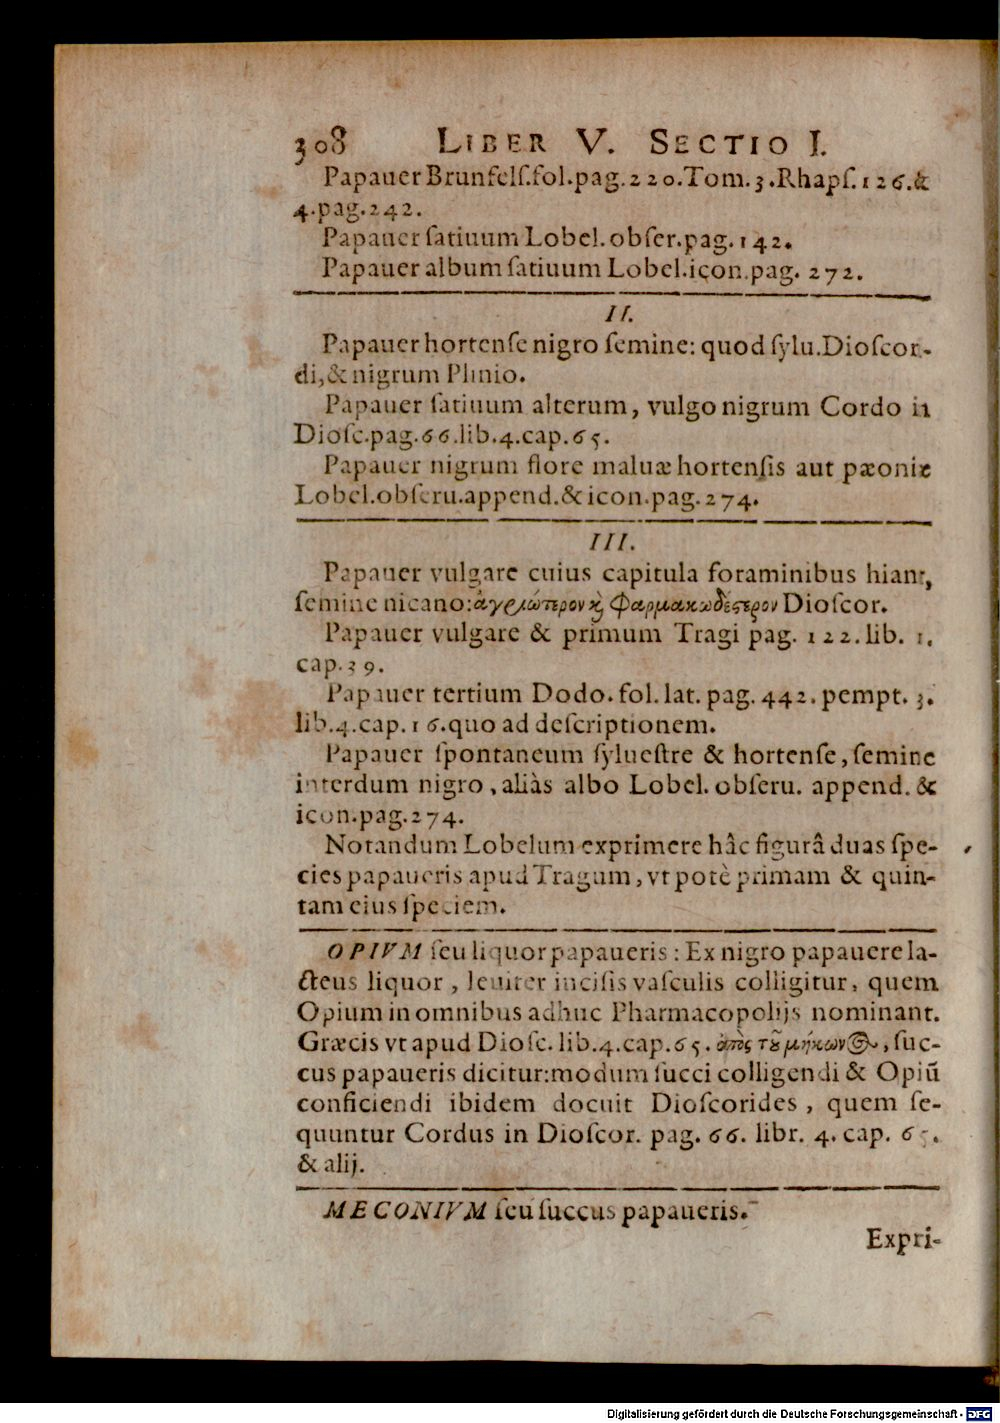 308 LIBER V. SECTIO I.
Papauer Brunfelſ.fol.pag.220.Tom.3.Rhapſ.126.&
4.pag.242.
Papauer ſatiuum Lobel.obſer.pag.142.
Papauer album ſatiuum Lobel.icon.pag.272.
II.
Papauer hortenſe nigro ſemine: quod ſylu.Dioſcor-
di,& nigrum Plinio.
Papauer ſatiuum alterum, vulgo nigrum Cordo in
Dioſc.pag.66.lib.4.cap.65.
Papauer nigrum flore maluæ hortenſis aut pæoniæ
Lobel.obſeru.append.& icon.pag.274.
III.
Papauer vulgare cuius capitula foraminibus hiant,
ſemine nicano: ἀγριώτερον καὶ φαρμακωδέστερον Dioſcor.
Papauer vulgare & primum Tragi pag. 122. lib. 1.
cap.39.
Papauer tertium Dodo. fol. lat. pag. 442. pempt. 3.
lib.4.cap.16.quo ad deſcriptionem.
Papauer ſpontaneum ſylueſtre & hortenſe, ſemine
interdum nigro, aliàs albo Lobel. obſeru. append. &
icon.pag.274.
Notandum Lobelum exprimere hâc figurâ duas ſpe-
cies papaueris apud Tragum, vt potè primam & quin-
tam eius ſpeciem.
OPIVM ſeu liquor papaueris: Ex nigro papauere la-
cteus liquor, leuiter inciſis vaſculis colligitur, quem
Opium in omnibus adhuc Pharmacopolijs nominant.
Græcis vt apud Dioſc. lib.4.cap.65. ὀπὸς τοῦ μήκωνος, ſuc-
cus papaueris dicitur: modum ſucci colligendi & Opiū
conficiendi ibidem docuit Dioſcorides, quem ſe-
quuntur Cordus in Dioſcor. pag. 66. libr. 4. cap. 65.
& alij.
MECONIVM ſeu ſuccus papaueris.
Expri-
Digitalisierung gefördert durch die Deutsche Forschungsgemeinschaft - DFG